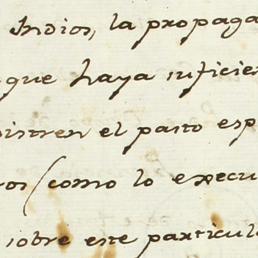 Indios, la propaga
que haya suficien
istren el pasto esp
ros (como lo execu
sobre este particul